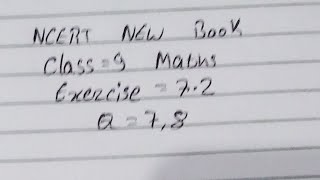 NCERT NEW Book
Class = 9 Maths
Exercise = 7.2
Q = 7,8